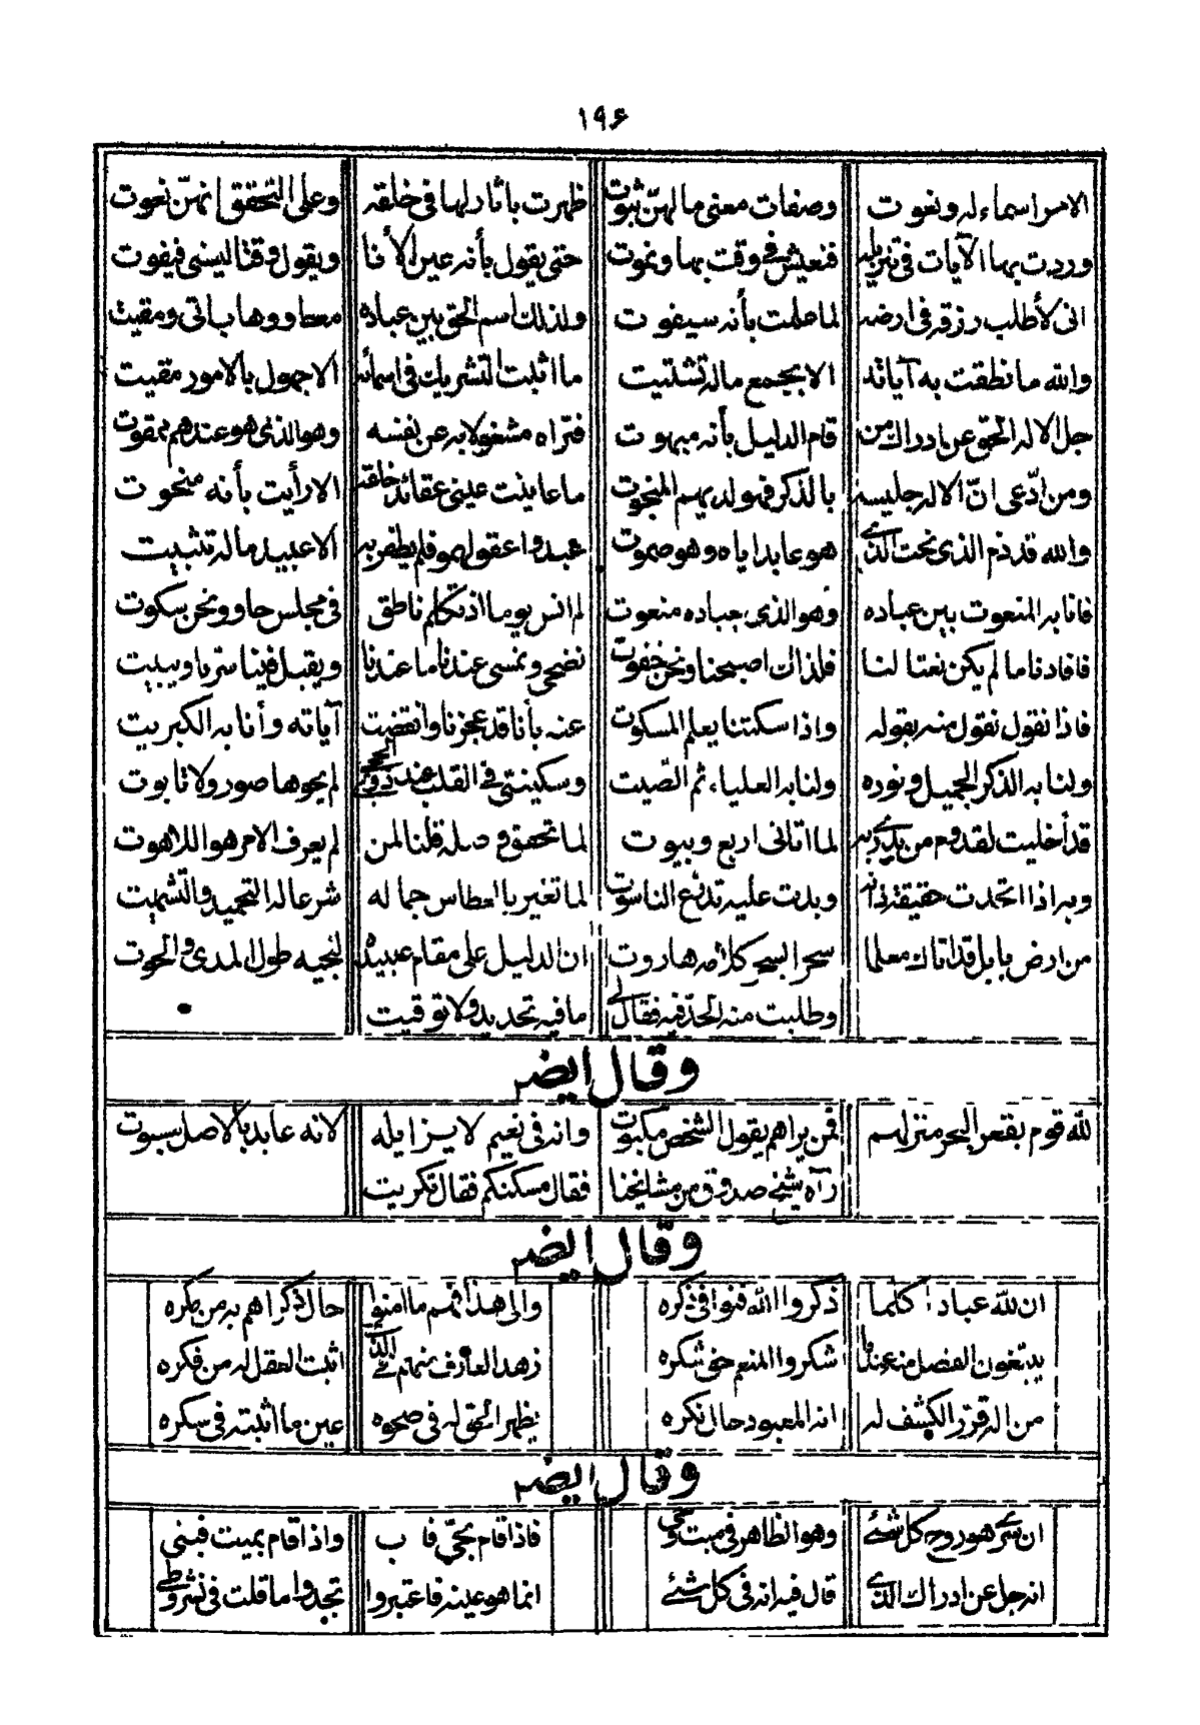 ۱۹۶
الامر اسماء له ونعوت وصفات معنى ما لهنّ ثبوت ظهرت باثارلها فى خلقه وعلى التحقق انهنّ نعوت
وردت بها الآيات فى تنزيله فنعيش فى وقت بها ونموت حتى يقول بأنه عين الأنا ويقول وقتا ليسنى فيفوت
انى لأطلب رزقه فى ارضه لما علمت بأنه سيفوت ولذلك اسم الحق بين عباده معطا ووهاباتى ومقيت
والله ما نطقت به آياته الا بجمع ماله تشتيت ما اثبت التشريك فى اسمائه الاجهول بالامور مقيت
جل الاله الحق عن ادراك من قام الدليل بأنه مبهوت فتراه مشغولا به عن نفسه وهو الذى هو عندهم ممقوت
ومن ادّعى انّ الاله جليسه بالذكر فهو لديهم المنحوت ما عاينت عينى عقائد خلقه الا رأيت بأنه منحوت
والله قد ذم الذى نحت الذى هو عابد اياه وهو صموت عبدوا عقولهمو فلم يظفر به الا عبيد ماله تثبيت
فانا به المنعوت بين عباده وهو الذى بعباده منعوت لم انس يوما اذ تكلم ناطق فى مجلس حاو ونحن سكوت
فافادنا ما لم يكن نعتا لنا فلذاك اصبحنا ونحن خفوت نضحى ونمسى عندنا ما عندنا ويقيل فينا سرّنا ويبيت
فاذا نقول نقول منه بقوله واذا سكتنا يعلم المسكوت عنه بأنا قد عجزنا وانقضت آياته وأنا به الكبريت
ولنا به الذكر الجميل ونوره ولنا به العلياء، ثم الصّيت وسكينتى فى القلب عند لم يحوها صور ولا تابوت
قد أخليت لقدوم من لما اتانى اربع وبيوت لما تحقق وصله قلنا لمن لم يعرف الامر هو اللاهوت
وبه اذا اتحدت حقيقة ذاته وبدت عليه تدرّع الناسوت لما تغير بالعطاس جماله شرعا له التحميد والتشميت
من ارض بابل قد اتاك معلما سحر السحر كلامه هاروت ان الدليل على مقام عبيده لنجيه طول المدى والحوت
وطلبت منه الحدّ فيه فقال لى ما فيه تحديد ولا توقيت
وقال ايضـ
لله قوم بقعر البحر منزلهم فمن يراهم يقول الشخص مكبوت وانه فى نعيم لا يزايله لانه عابد بالاصل سبوت
رآه شيخ صدوق من مشايخنا فقال مسكنكم فقال تكريت
وقال ايضـ
ان لله عبادا كلما ذكروا الله فنوا فى ذكره والى هذا فهم ما امنوا حال ذكراهم به من مكره
يبتغون الفضل من عنده شكروا المنعم حق شكره زهد العارف منهم فى الذى اثبت العقل له من فكره
من اله قرّر الكشف له انه المعبود حال نكره يظهر الحق له فى صحوه عين ما اثبته فى سكره
وقال ايضـ
ان سرّى هو روح كل شئ وهو الظاهر فى ميت وحى فاذا قام بحىّ فاب واذا قام بميت فبنى
انه جل عن ادراك الذى قال فيه انه فى كل شئ انما هو عينه فاعتبروا تجدوا ما قلت فى نشر وطى